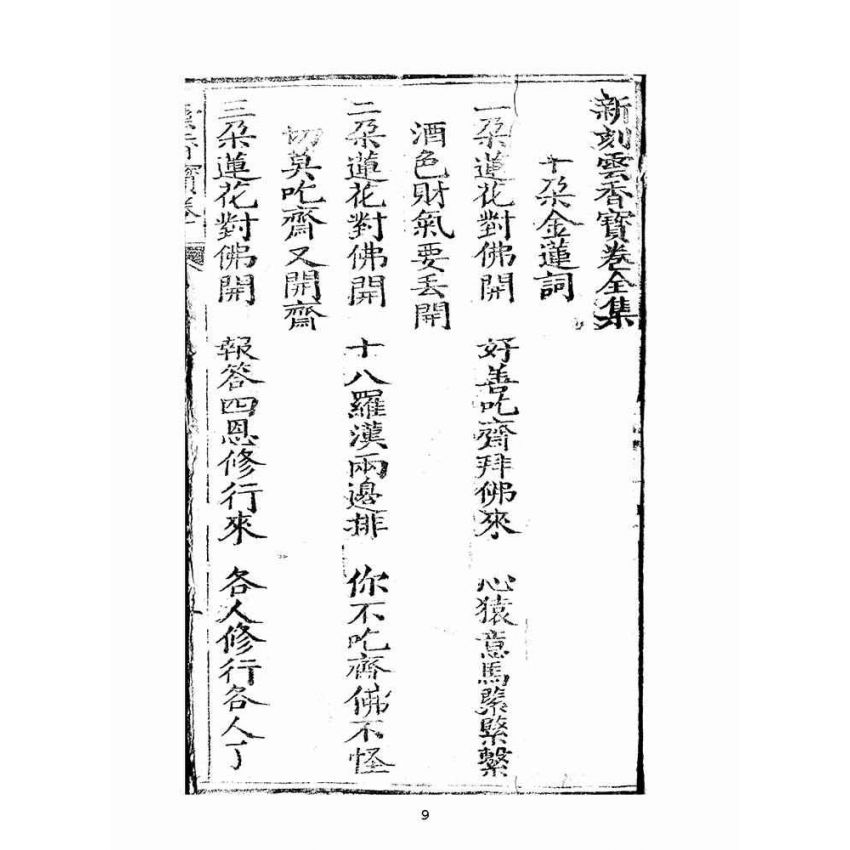 新刻雲香寶卷全集
十朶金蓮詞
一朶蓮花對佛開 好善吃齋拜佛來 心猿意馬緊緊繫
酒色財氣要丟開
二朶蓮花對佛開 十八羅漢兩邊排 你不吃齋佛不怪
切莫吃齋又開齋
三朶蓮花對佛開 報答四恩修行來 各人修行各人了
寶卷
9